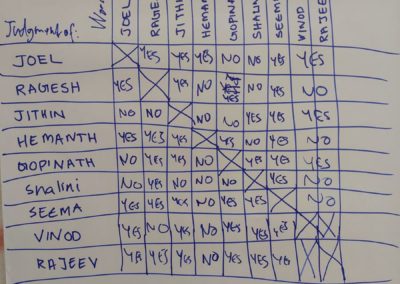 Judgment of: JOEL RAGESH JITHIN HEMAN GOPINA SHALIN SEEMA VINOD RAJEE
JOEL YES YES YES NO NO YES YES
RAGESH YES YES NO NO YES NO
JITHIN NO NO NO NO YES YES YES
HEMANTH YES YES YES YES NO YES NO
GOPINATH NO YES YES NO YES YES YES
Shalini NO YES NO NO NO YES NO
SEEMA YES YES YES NO YES YES NO
VINOD YES NO YES NO YES YES YES
RAJEEV YES YES YES NO YES YES YES